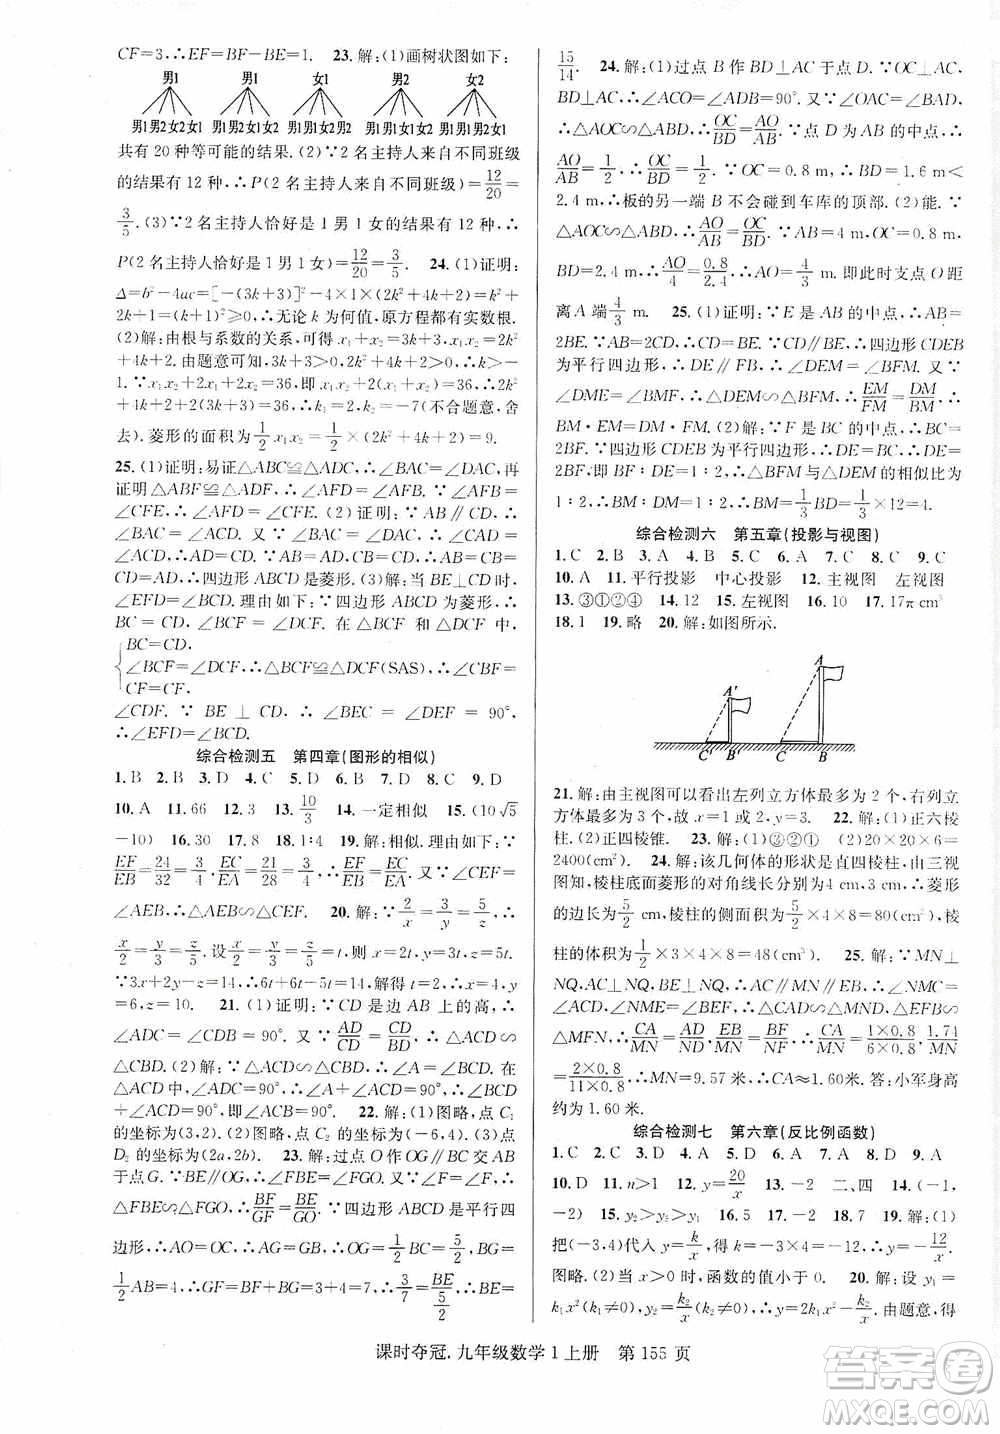 CF=3,∴EF=BF-BE=1. 23.解:(1)画树状图如下:
男1 男1 女1 男2 女2
男1男2女2女1 男1男2女2女1 男1男1女2男2 男1男1女2女1 男1男1男2女1
共有20种等可能的结果.(2)∵2名主持人来自不同班级
的结果有12种,∴P(2名主持人来自不同班级)=12/20=
3/5.(3)∵2名主持人恰好是1男1女的结果有12种,∴
P(2名主持人恰好是1男1女)=12/20=3/5. 24.(1)证明:
Δ=b²-4ac=[-(3k+3)]²-4×1×(2k²+4k+2)=k²+
2k+1=(k+1)²≥0,∴无论k为何值,原方程都有实数根.
(2)解:由根与系数的关系,可得x₁+x₂=3k+3,x₁x₂=
2k²+4k+2,由题意可知,3k+3>0,2k²+4k+2>0,∴k>-
1.∵x₁x₂=2k²+4k+2=36,即k²+2k+1=18
25.(1)证明:易证△ABC≌△ADC,∴∠BAC=∠DAC,再
证明△ABF≌△ADF,∴∠AFB=∠AFD.∵∠AFB=
∠CFE,∴∠AFD=∠CFE.(2)证明:∵AB∥CD,∴
∠BAC=∠ACD.又∵∠BAC=∠DAC,∴∠CAD=
∠ACD,∴AD=CD,∴四边形ABCD是菱形.(3)当BE⊥CD时,
∠EFD=∠BCD.理由如下:∵四边形ABCD为菱形,∴
BC=CD,∠BCF=∠DCF.在△BCF和△DCF中,
BC=CD,
∠BCF=∠DCF,∴△BCF≌△DCF(SAS),∴∠CBF=
CF=CF,
∠CDF.∵BE⊥CD,∴∠BEC=∠DEF=90°,∴
∠EFD=∠BCD.
综合检测五 第四章(图形的相似)
1.B 2.B 3.A 4.C 5.D 6.B 7.B 8.C 9.D
10.A 11.66 12.3 13.10/3 14.一定相似 15.(10√5
-10) 16.30 17.8 18.1:4 19.解:相似.理由如下:∵
EF/EB=24/32=3/4,EC/EA=21/28=3/4,∴EF/EB=EC/EA.又∵∠CEF=
∠AEB,∴△AEB∽△CEF. 20.解:∵2/x=3/y=5/z,∴
x/2=y/3=z/5.设x/2=y/3=z/5=t,则x=2t,y=3t,z=5t.
∵3x+2y-z=14,∴6t+6t-5t=14,解得t=2,∴x=4,y
=6,z=10. 21.(1)证明:∵CD是边AB上的高,∴
∠ADC=∠CDB=90°.又∵AD/CD=CD/BD,∴△ACD∽
△CBD.(2)解:∵△ACD∽△CBD,∴∠A=∠BCD.在
△ACD中,∠ADC=90°,∴∠A+∠ACD=90°,∴∠BCD
+∠ACD=90°,即∠ACB=90°. 22.解:(1)图略,点C₁
的坐标为(3,2).(2)图略,点C₂的坐标为(-6,4).(3)点
D₂的坐标为(2a,2b). 23.解:过点O作OG∥BC交AB于
点G.∵BE∥OG,∴∠FBE=∠FGO,∠FEB=∠FOG,∴
△FBE∽△FGO,∴BF/GF=BE/GO.∵四边形ABCD是平行四
边形,∴AO=OC,∴AG=BG,∴OG=1/2BC=5/2,BG=
1/2AB=4,∴GF=GB+BF=4+3/4
课时夺冠.九年级数学1上册 第155页
15/14. 24.解:(1)过点B作BD⊥AC于点D.∵OC⊥AC,
BD⊥AC,∴∠ACO=∠ADB=90°.又∵∠OAC=∠BAD,
∴△AOC∽△ABD,∴OC/BD=AO/AB.∵点D为AB的中点,∴
AO/AB=1/2,∴OC/BD=1/2.∵OC=0.8 m,∴BD=1.6 m<
2.4 m,∴板的另一端B不会碰到车库的顶部.(2)能.∵
△AOC∽△ABD,∴AO/AB=OC/BD.∵AB=4 m,OC=0.8 m,
BD=2.4 m,∴AO/4=0.8/2.4,∴AO=4/3 m.即此时支点O距
离A端4/3 m. 25.(1)证明:∵E是AB的中点,∴AB=
2BE.∵AB=2CD,∴CD=BE.∵CD∥BE,∴四边形CDEB
为平行四边形,∴DE∥CB,∴∠DEM=∠BFM.又∵
∠DME=∠BMF,∴△EDM∽△FBM,∴EM/FM=DM/BM,∴
BM·EM=DM·FM.(2)解:∵F是BC的中点,∴BC=
2BF.∵四边形CDEB为平行四边形,∴DE=BC,∴DE=
2BF,即BF:DE=1:2,∴△BFM与△DEM的相似比为
1:2,∴BM:DM=1:2,∴BM=1/3BD=1/3×12=4.
综合检测六 第五章(投影与视图)
1.C 2.B 3.A 4.C 5.C 6.A 7.C 8.C 9.C
10.A 11.平行投影 中心投影 12.主视图 左视图
13.③①②④ 14.12 15.左视图 16.10 17.17π cm³
18.1 19.略 20.解:如图所示.
A′ A
C′ B′ C B
21.解:由主视图可以看出左列立方体最多为2个,右列立
方体最多为3个,故x=1或x=2,y=3. 22.解:(1)正六棱
柱.(2)正四棱锥. 23.解:(1)③②①(2)20×20×6=
2400(cm²). 24.解:该几何体的形状是直四棱柱,由三视
图知,棱柱底面菱形的对角线长分别为4 cm,3 cm,∴菱形
的边长为5/2 cm,棱柱的侧面积为5/2×4×8=80(cm²),棱
柱的体积为1/2×3×4×8=48(cm³). 25.解:∵MN⊥
NQ,AC⊥NQ,EB⊥NQ,∴AC∥BE∥MN,∴∠CAD=
∠MND,∠NME=∠BEF,∴△CAD∽△MND,△EFB∽
△MFN,∴CA/MN=AD/ND,EB/MN=BF/NF,∴CA/MN=1×0.8/6×0.8,1.74/MN=
2×0.8/11×0.8,∴MN=9.57米,∴CA≈1.60米.答:小军身高
约为1.60米.
综合检测七 第六章(反比例函数)
1.C 2.C 3.D 4.D 5.C 6.A 7.D 8.D 9.A
10.D 11.n>1 12.y=20/x 13.-2 二、四 14.(-1,
-2) 15.y₂>y₃>y₁ 16.5 17.-2 18.7 19.解:(1)
把(-3,4)代入y=k/x,得k=-3×4=-12,∴y=-12/x.
图略.(2)当x>0时,函数的值小于0. 20.解:设y₁=
k₁x²(k₁≠0),y₂=k₂/x(k₂≠0),∴y=k₁x²+k₂/x.由题意,得
答案圈
MXQE.COM